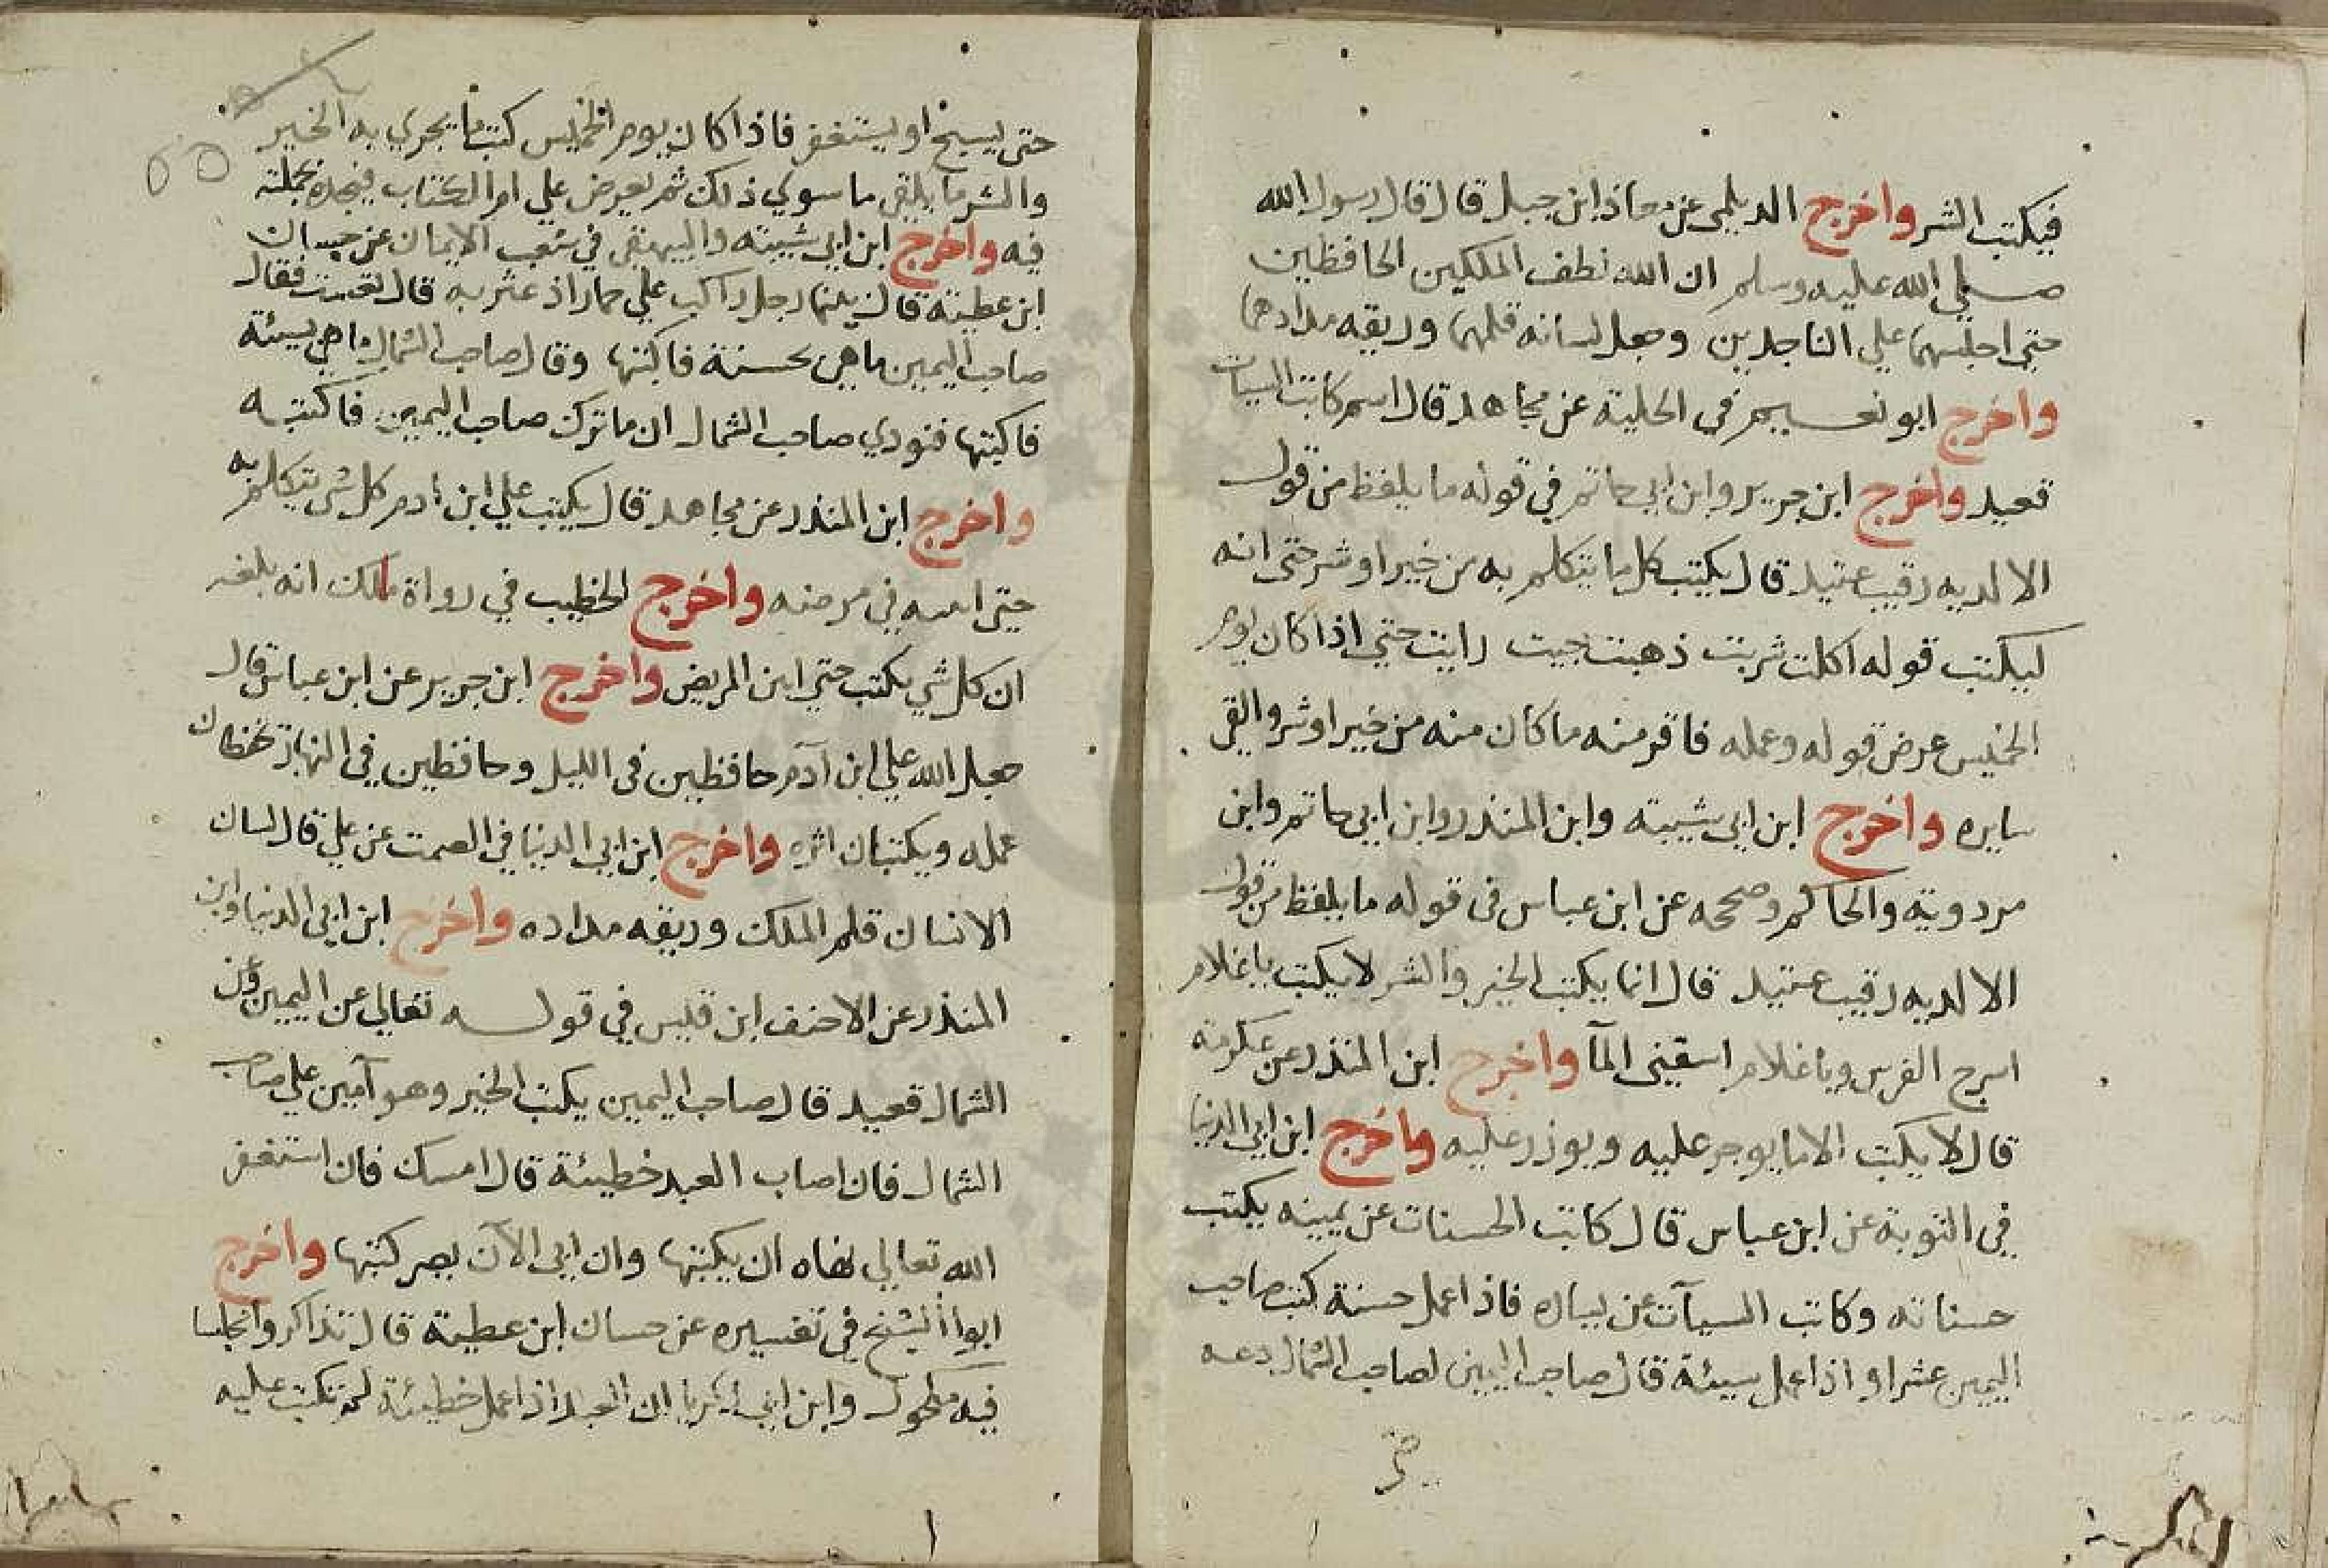 فيكتب الشر واخرج الديلمي عن معاذ ابن جبل قال قال رسول الله
صلي الله عليه وسلم ان الله لطف الملكين الحافظين
حتى اجلسهما علي الناجدين وجعل لسانه قلمهما وريقه مدادهما
واخرج ابو نعيم في الحلية عن مجاهد قال اسم كاتب السيات
قعيد واخرج ابن جرير وابن ابي حاتم في قوله ما يلفظ من قول
الا لديه رقيب عتيد قال يكتب كل ما يتكلم به من خير او شر حتى انه
ليكتب قوله اكلت شربت ذهبت جيت رايت حتي اذا كان يوم
الخميس عرض قوله وعمله فاقر منه ما كان منه من خير او شر والقي
سايره واخرج ابن ابي شيبة وابن المنذر وابن ابي حاتم وابن
مردوية والحاكم وصححه عن ابن عباس في قوله ما يلفظ من قول
الا لديه رقيب عتيد قال انما يكتب الخير والشر لا يكتب يا غلام
اسرج الفرس ويا غلام اسقيني المآ واخرج ابن المنذر عن عكرمة
قال لا يكتب الا ما يوجر عليه ويوزر عليه واخرج ابن ابي الدنيا
في التوبة عن ابن عباس قال كاتب الحسنات عن يمينه يكتب
حسناته وكاتب السيآت عن يساره فاذا عمل حسنة كتب صاحب
اليمين عشرا واذا عمل سيئة قال صاحب اليمين لصاحب الشمال دعه
حتى
حتى يسبح او يستغفر فاذا كان يوم الخميس كتب ما يجري به الخير
والشر ما يلقي ما سوي ذلك ثم يعرض علي ام الكتاب فيجده بجملته
فيه واخرج ابن ابي شيبته والبيهقي في شعب الايمان عن حسان
ابن عطية قال بينما رجل راكب علي حمار اذ عثر به قال تعست فقال
صاحب اليمين ما هي بحسنة فاكتبها وقال صاحب الشمال ما هي بسيئة
فاكتبها فنودي صاحب الشمال ان ما ترك صاحب اليمين فاكتبه
واخرج ابن المنذر عن مجاهد قال يكتب علي ابن ادم كل شي يتكلم به
حتى انينه في مرضه واخرج الخطيب في رواة مالك انه بلغه
ان كل شي يكتب حتي انين المريض واخرج ابن جرير عن ابن عباس قال
جعل الله علي ابن آدم حافظين في الليل وحافظين في النهار يحفظان
عمله ويكتبان اثره واخرج ابن ابي الدنيا في الصمت عن علي قال لسان
الانسان قلم الملك وريقه مداده واخرج ابن ابي الدنيا وابن
المنذر عن الاحنف ابن قيس في قوله تعالي عن اليمين وعن
الشمال قعيد قال صاحب اليمين يكتب الخير وهو آمين علي صاحب
الشمال فان اصاب العبد خطيئة قال امسك فان استغفر
الله تعالي نهاه ان يكتبها وان ابي الآن يصر كتبها واخرج
ابوا الشيخ في تفسيره عن حسان ابن عطية قال تذاكروا مجلسا
فيه مكحول وابن ابي زكريا ان العبد اذا عمل خطيئة لم تكتب عليه